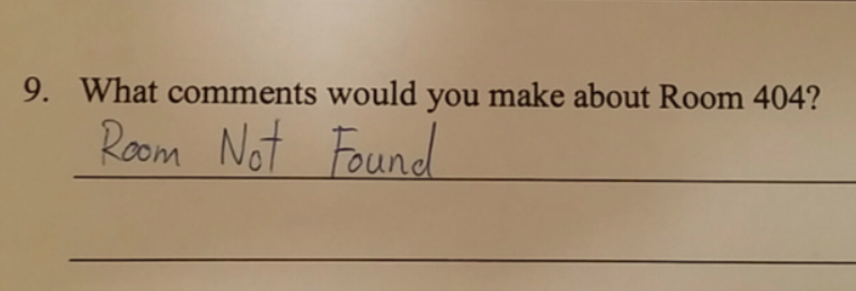 9. What comments would you make about Room 404?
Room Not Found